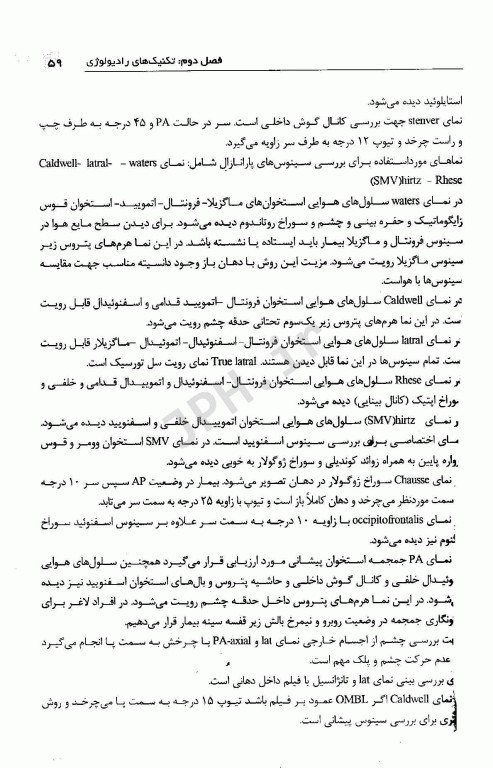 فصل دوم: تکنیک‌های رادیولوژی ۵۹
استایلوئید دیده می‌شود.
نمای stenver جهت بررسی کانال گوش داخلی است. سر در حالت PA و ۴۵ درجه به طرف چپ
و راست چرخد و تیوپ ۱۲ درجه به طرف سر زاویه می‌گیرد.
نماهای مورداستفاده برای بررسی سینوس‌های پارانازال شامل: نمای Caldwell- latral- - waters
(SMV)hirtz - Rhese
در نمای waters سلول‌های هوایی استخوان‌های ماگزیلا- فرونتال- اتموئید- استخوان قوس
زایگوماتیک و حفره بینی و چشم و سوراخ روتاندوم دیده می‌شود. برای دیدن سطح مایع هوا در
سینوس فرونتال و ماگزیلا بیمار باید ایستاده یا نشسته باشد. در این نما هرم‌های پتروس زیر
سینوس ماگزیلا رویت می‌شود. مزیت این روش با دهان باز وجود دانسیته مناسب جهت مقایسه
سینوس‌ها با هواست.
در نمای Caldwell سلول‌های هوایی استخوان فرونتال -اتموپید قدامی و اسفنوئیدال قابل رویت
ست. در این نما هرم‌های پتروس زیر یک‌سوم تحتانی حدقه چشم رویت می‌شود.
ر نمای latral سلول‌های هوایی استخوان فرونتال- اسفنوئیدال- اتموئیدال -ماگزیلار قابل رویت
ست. تمام سینوس‌ها در این نما قابل دیدن هستند. True latral نمای رویت سل تورسیک است.
ر نمای Rhese سلول‌های هوایی استخوان فرونتال- اسفنوئیدال و اتموییدال قدامی و خلفی و
وراخ اپتیک (کانال بینایی) دیده می‌شود.
ر نمای (SMV)hirtz سلول‌های هوایی استخوان اتموییدال خلفی و اسفنویید دیده می‌شود.
مای اختصاصی برای بررسی سینوس اسفنویید است. در نمای SMV استخوان وومر و قوس
واره پایین به همراه زوائد کوندیلی و سوراخ ژوگولار به خوبی دیده می‌شود.
نمای Chausse سوراخ ژوگولار در دهان تصویر می‌شود. بیمار در وضعیت AP سپس سر ۱۰ درجه
سمت موردنظر می‌چرخد و دهان کاملاً باز است و تیوپ با زاویه ۲۵ درجه به سمت سر می‌تابد.
نمای occipitofrontalis با زاویه ۱۰ درجه به سمت سر علاوه بر سینوس اسفنوئید سوراخ
نوم نیز دیده می‌شود.
نمای PA جمجمه استخوان پیشانی مورد ارزیابی قرار می‌گیرد همچنین سلول‌های هوایی
وئیدال خلفی و کانال گوش داخلی و حاشیه پتروس و بال‌های استخوان اسفنویید نیز دیده
شود. در این نما هرم‌های پتروس داخل حدقه چشم رویت می‌شود. در افراد لاغر برای
ونگاری جمجمه در وضعیت روبرو و نیمرخ بالش زیر قفسه سینه بیمار قرار می‌دهیم.
ت بررسی چشم از اجسام خارجی نمای lat و PA-axial با چرخش به سمت پا انجام می‌گیرد
عدم حرکت چشم و پلک مهم است.
ی بررسی بینی نمای lat و تانژانسیل با فیلم داخل دهانی است.
نمای Caldwell اگر OMBL عمود بر فیلم باشد تیوپ ۱۵ درجه به سمت پا می‌چرخد و روش
ی برای بررسی سینوس پیشانی است.